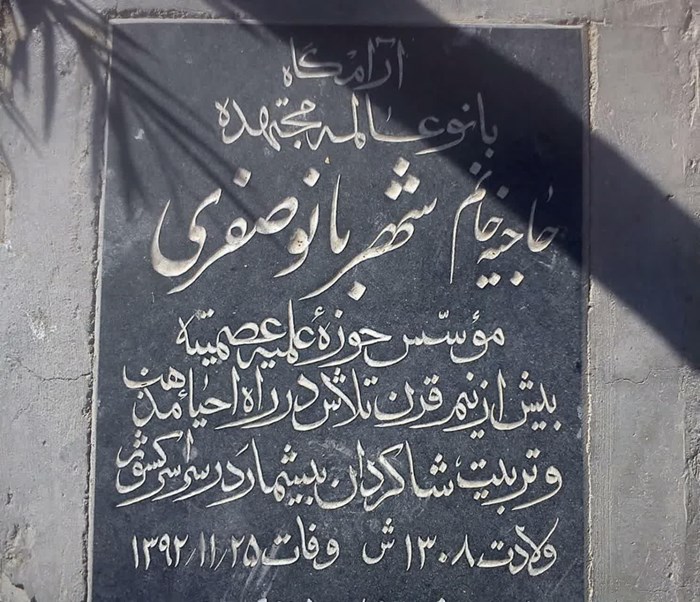 آرامگاه
بانو عالمه مجتهده
حاجیه خانم شهربانو صفری
مؤسّس حوزهٔ علمیه عصمتیّه
بیش از نیم قرن تلاش در راه احیاء مذهب
و تربیت شاگردان بیشمار در سراسر کشور
ولادت ۱۳۰۸ ش وفات ۱۳۹۲/۱۱/۲۵